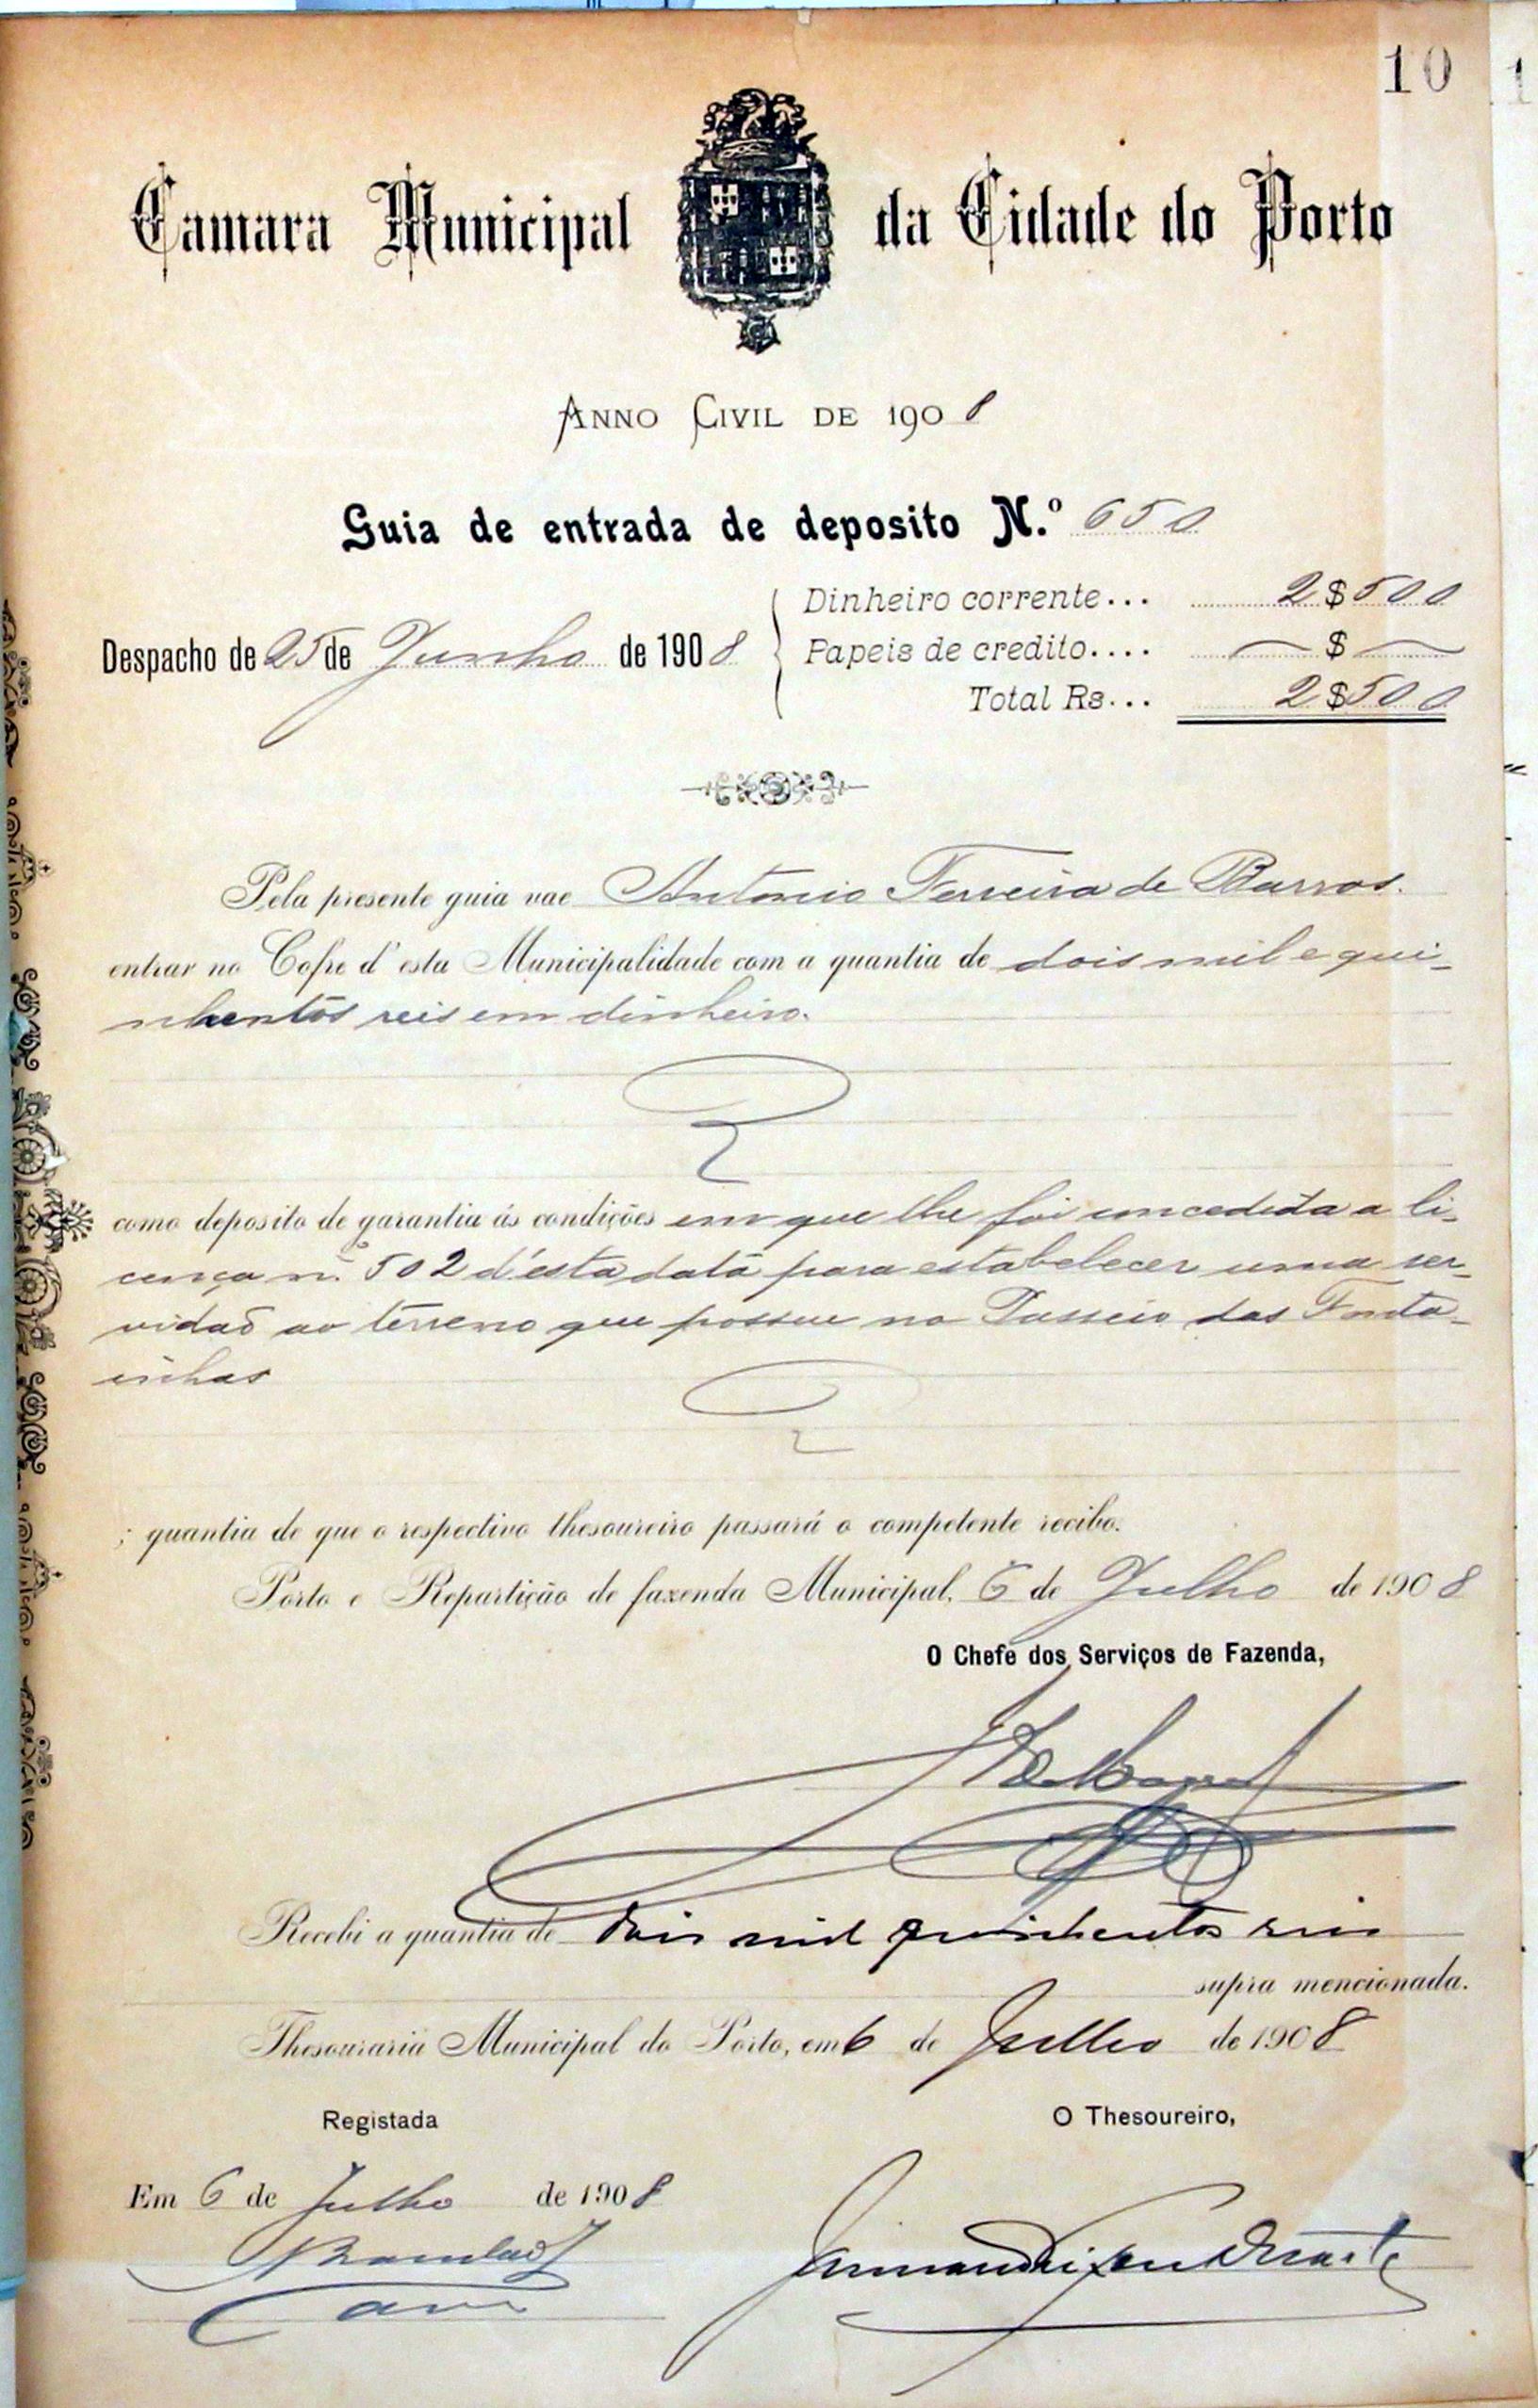 10
Camara Municipal da Cidade do Porto
Anno Civil de 1908
Guia de entrada de deposito N.º 650
Dinheiro corrente... 2$500
Despacho de 25 de Junho de 1908
Papeis de credito.... — $ —
Total Rs... 2$500
Pela presente guia vae Antonio Ferreira de Barros.
entrar no Cofre d'esta Municipalidade com a quantia de dois mil e qui-
nhentos reis em dinheiro.
como deposito de garantia ás condições em que lhe foi concedida a li-
cença n.º 502 d'esta data para estabelecer uma ser-
vidaõ ao terreno que possue no Passeio das Fonta-
inhas
; quantia de que o respectivo thesoureiro passará o competente recibo.
Porto e Repartição de fazenda Municipal, 6 de Julho de 1908
O Chefe dos Serviços de Fazenda,
Recebi a quantia de dois mil quinhentos reis
supra mencionada.
Thesouraria Municipal do Porto, em 6 de Julho de 1908
Registada
O Thesoureiro,
Em 6 de Julho de 1908